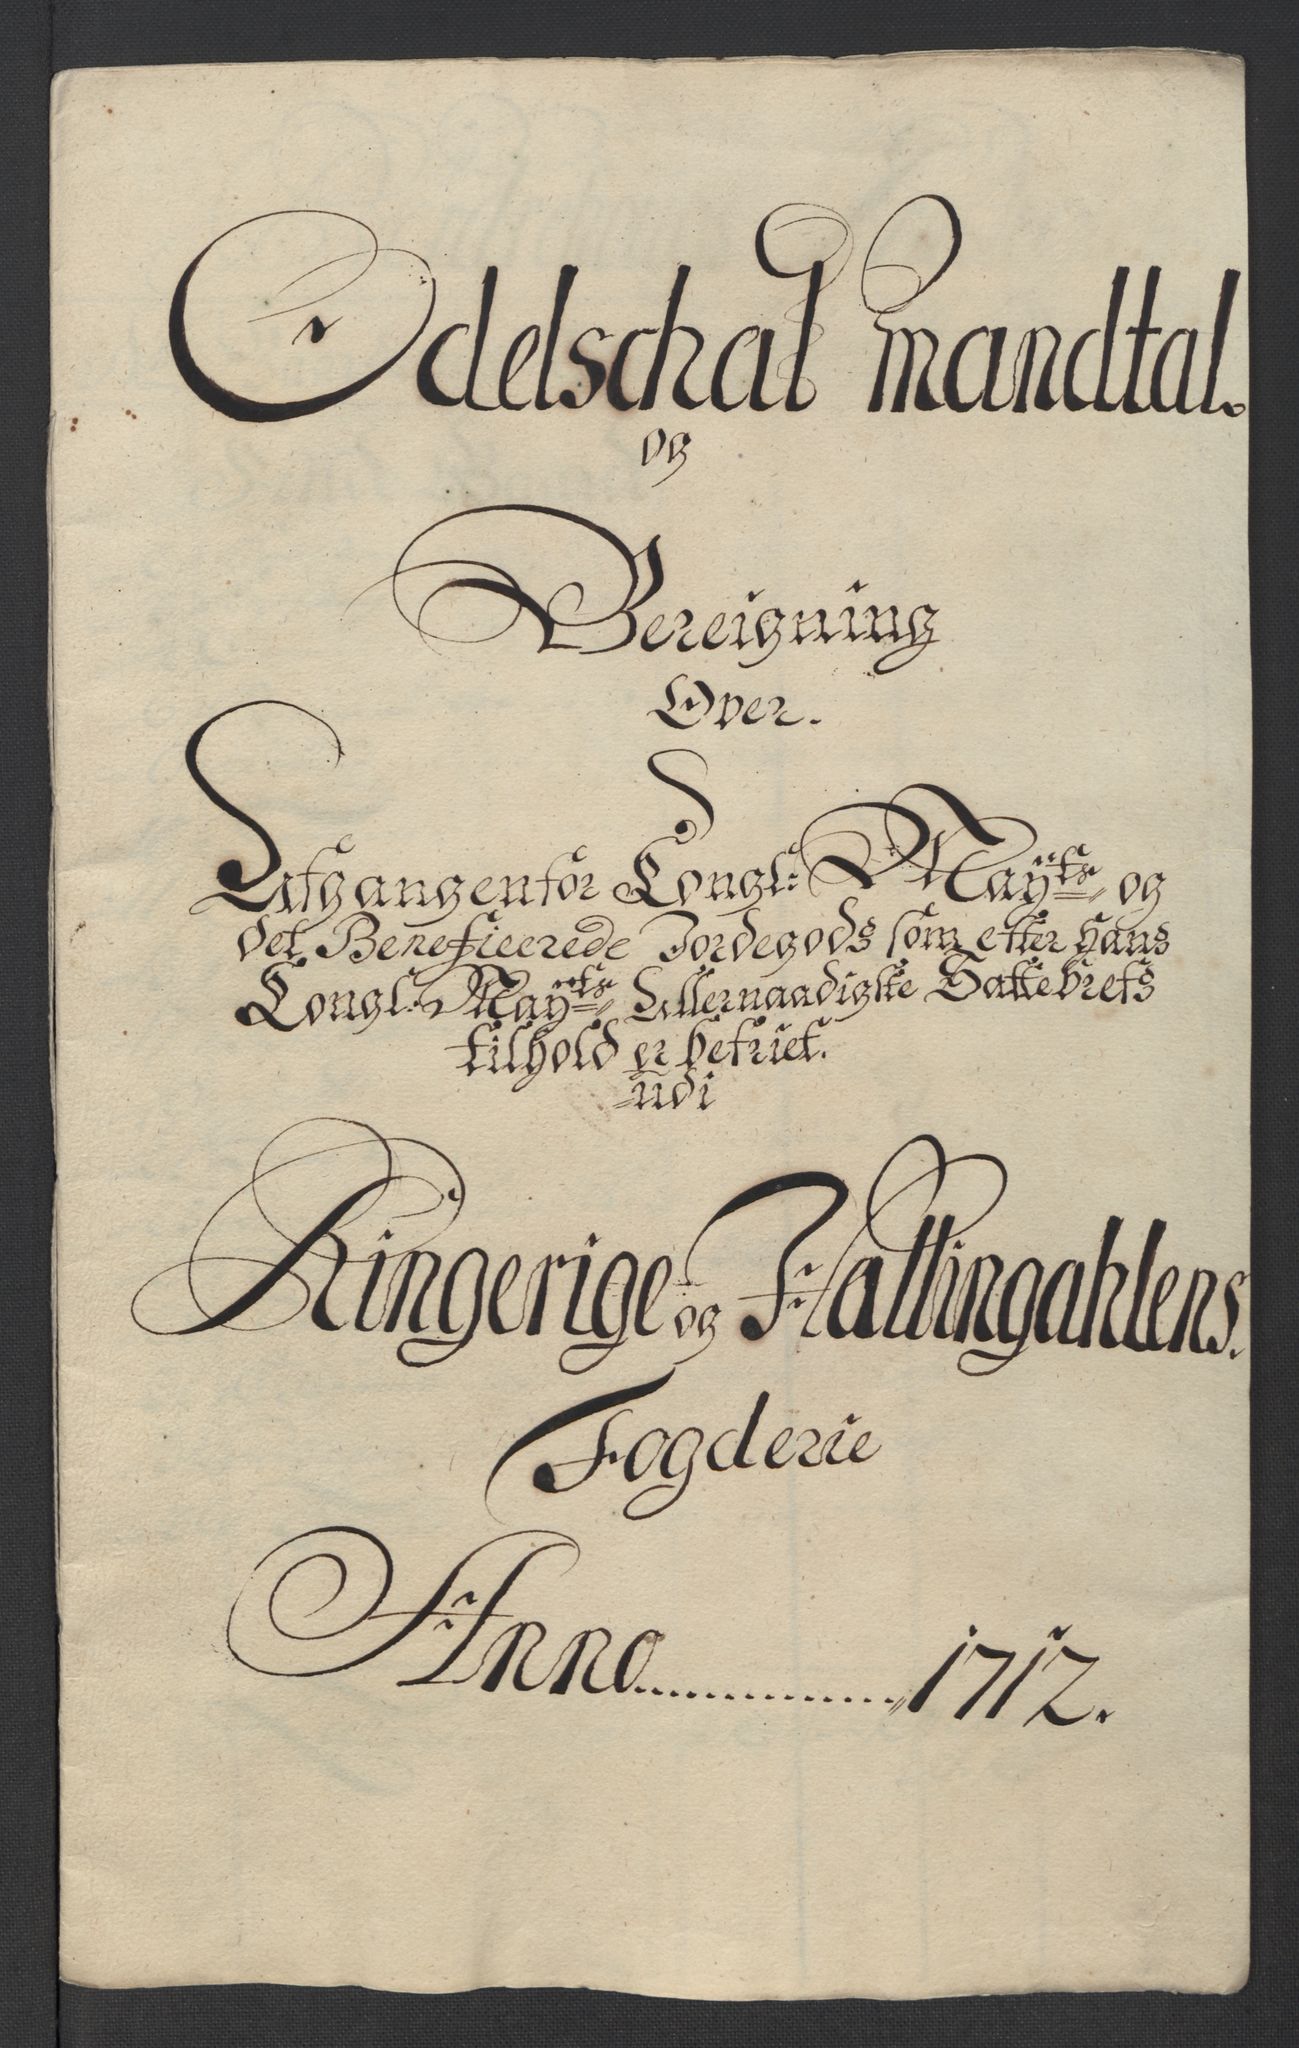 Odelschat mandtal.
og
Bereigning
Over.
Afgangen for Congl: Mayts og
det Beneficerede Jordegods som efter hans
Congl: Mayts Allernaadigste Skattebrefs
tilhold er befriet.
udi
Ringerige og Hallingdahlens.
Fogderie
Anno 1712.